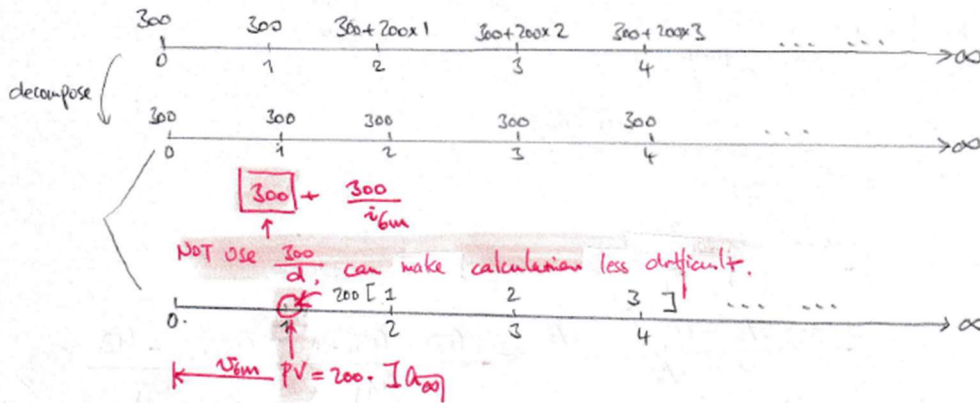 300 300 300+200×1 300+200×2 300+200×3 ... ...
0 1 2 3 4 ∞
decompose
300 300 300 300 300 ...
0 1 2 3 4 ∞
300 + 300/i6m
NOT use 300/d, can make calculation less difficult.
200 [ 1 2 3 ] .... ...
0 1 2 3 4 ∞
v6m PV = 200 · Ia∞